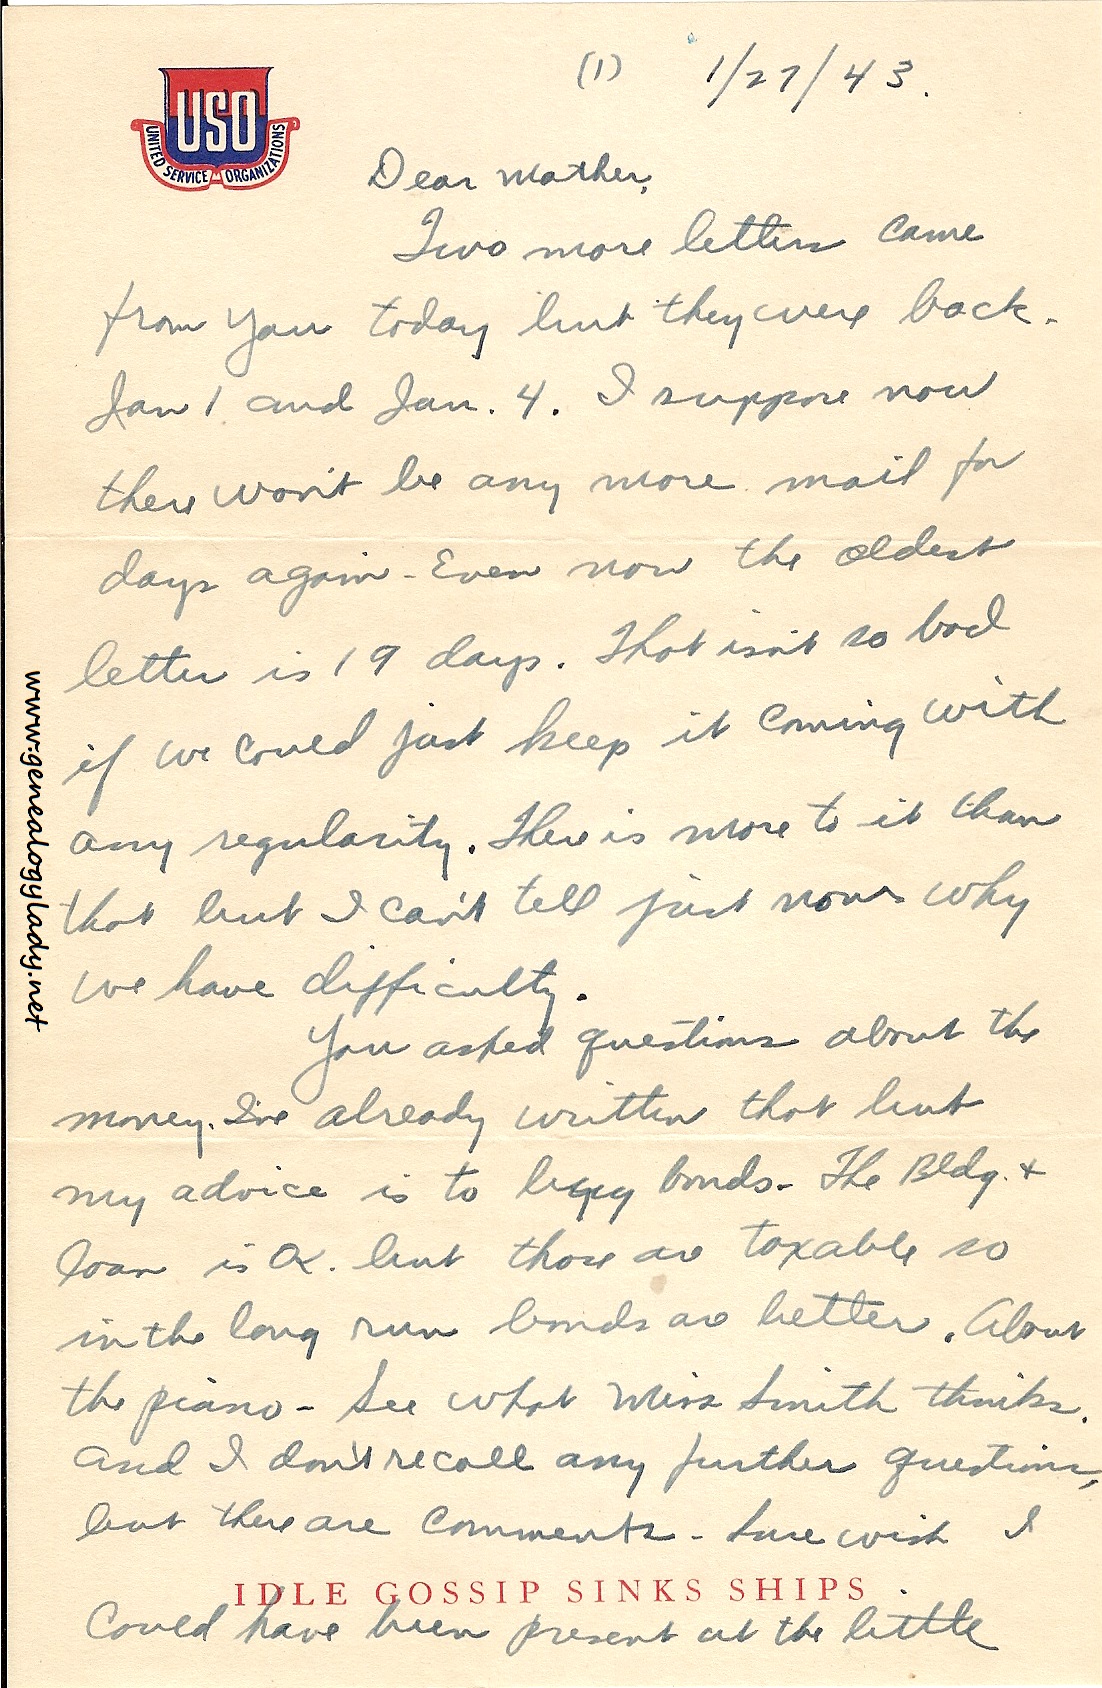 USO
UNITED SERVICE ORGANIZATIONS
(1) 1/27/43.
Dear Mother,
Two more letters came
from you today but they were back.
Jan 1 and Jan. 4. I suppose now
there won't be any more mail for
days again - Even now the oldest
letter is 19 days. That isn't so bad
if we could just keep it coming with
any regularity. There is more to it than
that but I can't tell just now why
we have difficulty.
You asked questions about the
money. I've already written that but
my advice is to buy bonds - The Bldg. +
loan is OK. but those are taxable so
in the long run bonds are better. About
the piano - See what Miss Smith thinks.
And I don't recall any further questions,
but there are comments - Sure wish I
IDLE GOSSIP SINKS SHIPS
could have been present at the little
www.genealogylady.net